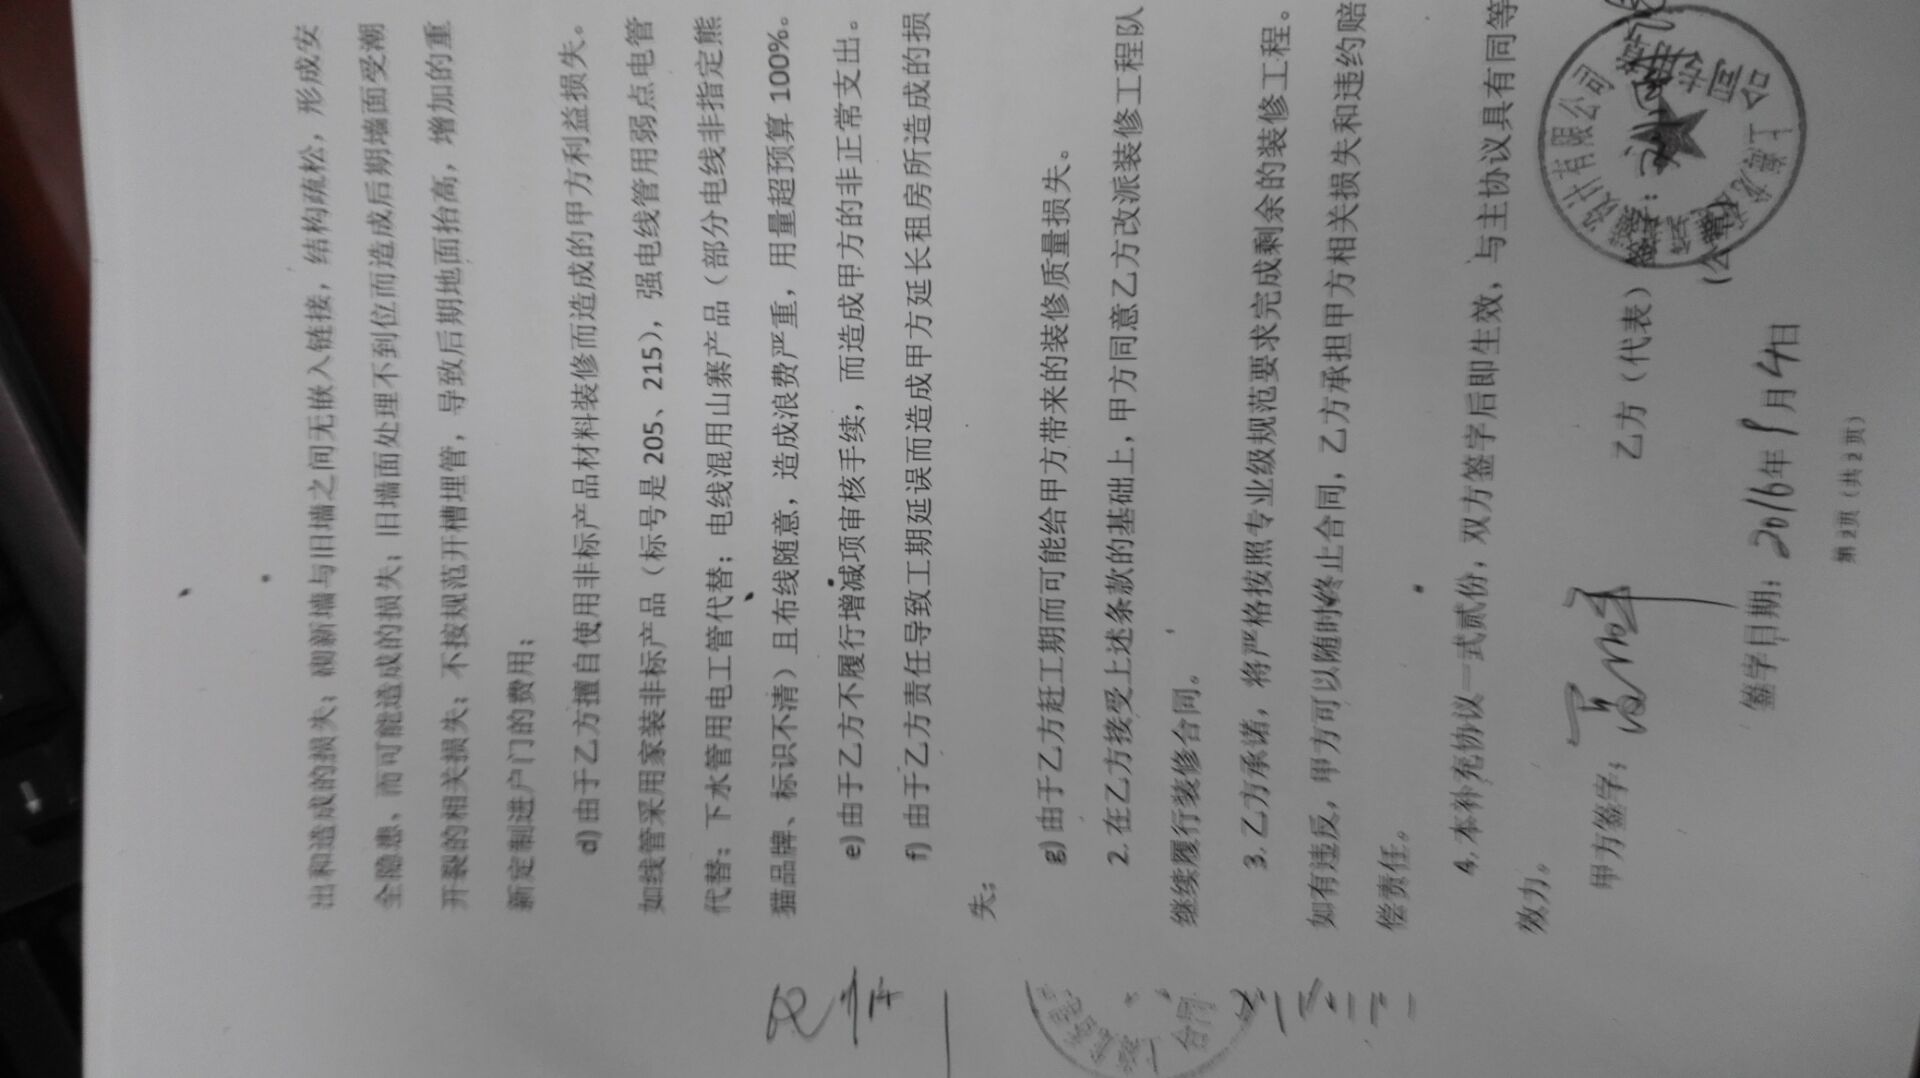 出和造成的损失；砌新墙与旧墙之间无嵌入链接，结构疏松，形成安
全隐患、而可能造成的损失；旧墙面处理不到位而造成后期墙面受潮
开裂的相关损失；不按规范开槽埋管，导致后期地面抬高，增加的重
新定制进户门的费用；
d) 由于乙方擅自使用非标产品材料装修而造成的甲方利益损失。
如线管采用家装非标产品（标号是 205、215），强电线管用弱点电管
代替；下水管用电工管代替；电线混用山寨产品（部分电线非指定熊
猫品牌、标识不清）且布线随意，造成浪费严重，用量超预算 100%。
e) 由于乙方不履行增减项审核手续，而造成甲方的非正常支出。
f) 由于乙方责任导致工期延误而造成甲方延长租房所造成的损
失；
g) 由于乙方赶工期而可能给甲方带来的装修质量损失。
2. 在乙方接受上述条款的基础上，甲方同意乙方改派装修工程队
继续履行装修合同。
3. 乙方承诺，将严格按照专业级规范要求完成剩余的装修工程。
如有违反，甲方可以随时终止合同，乙方承担甲方相关损失和违约赔
偿责任。
4. 本补充协议一式贰份，双方签字后即生效，与主协议具有同等
效力。
甲方签字： 乙方（代表）签字：
（公章）
设计有限公司
签字日期：2016年9月4日
第 2 页（共 2 页）
合同